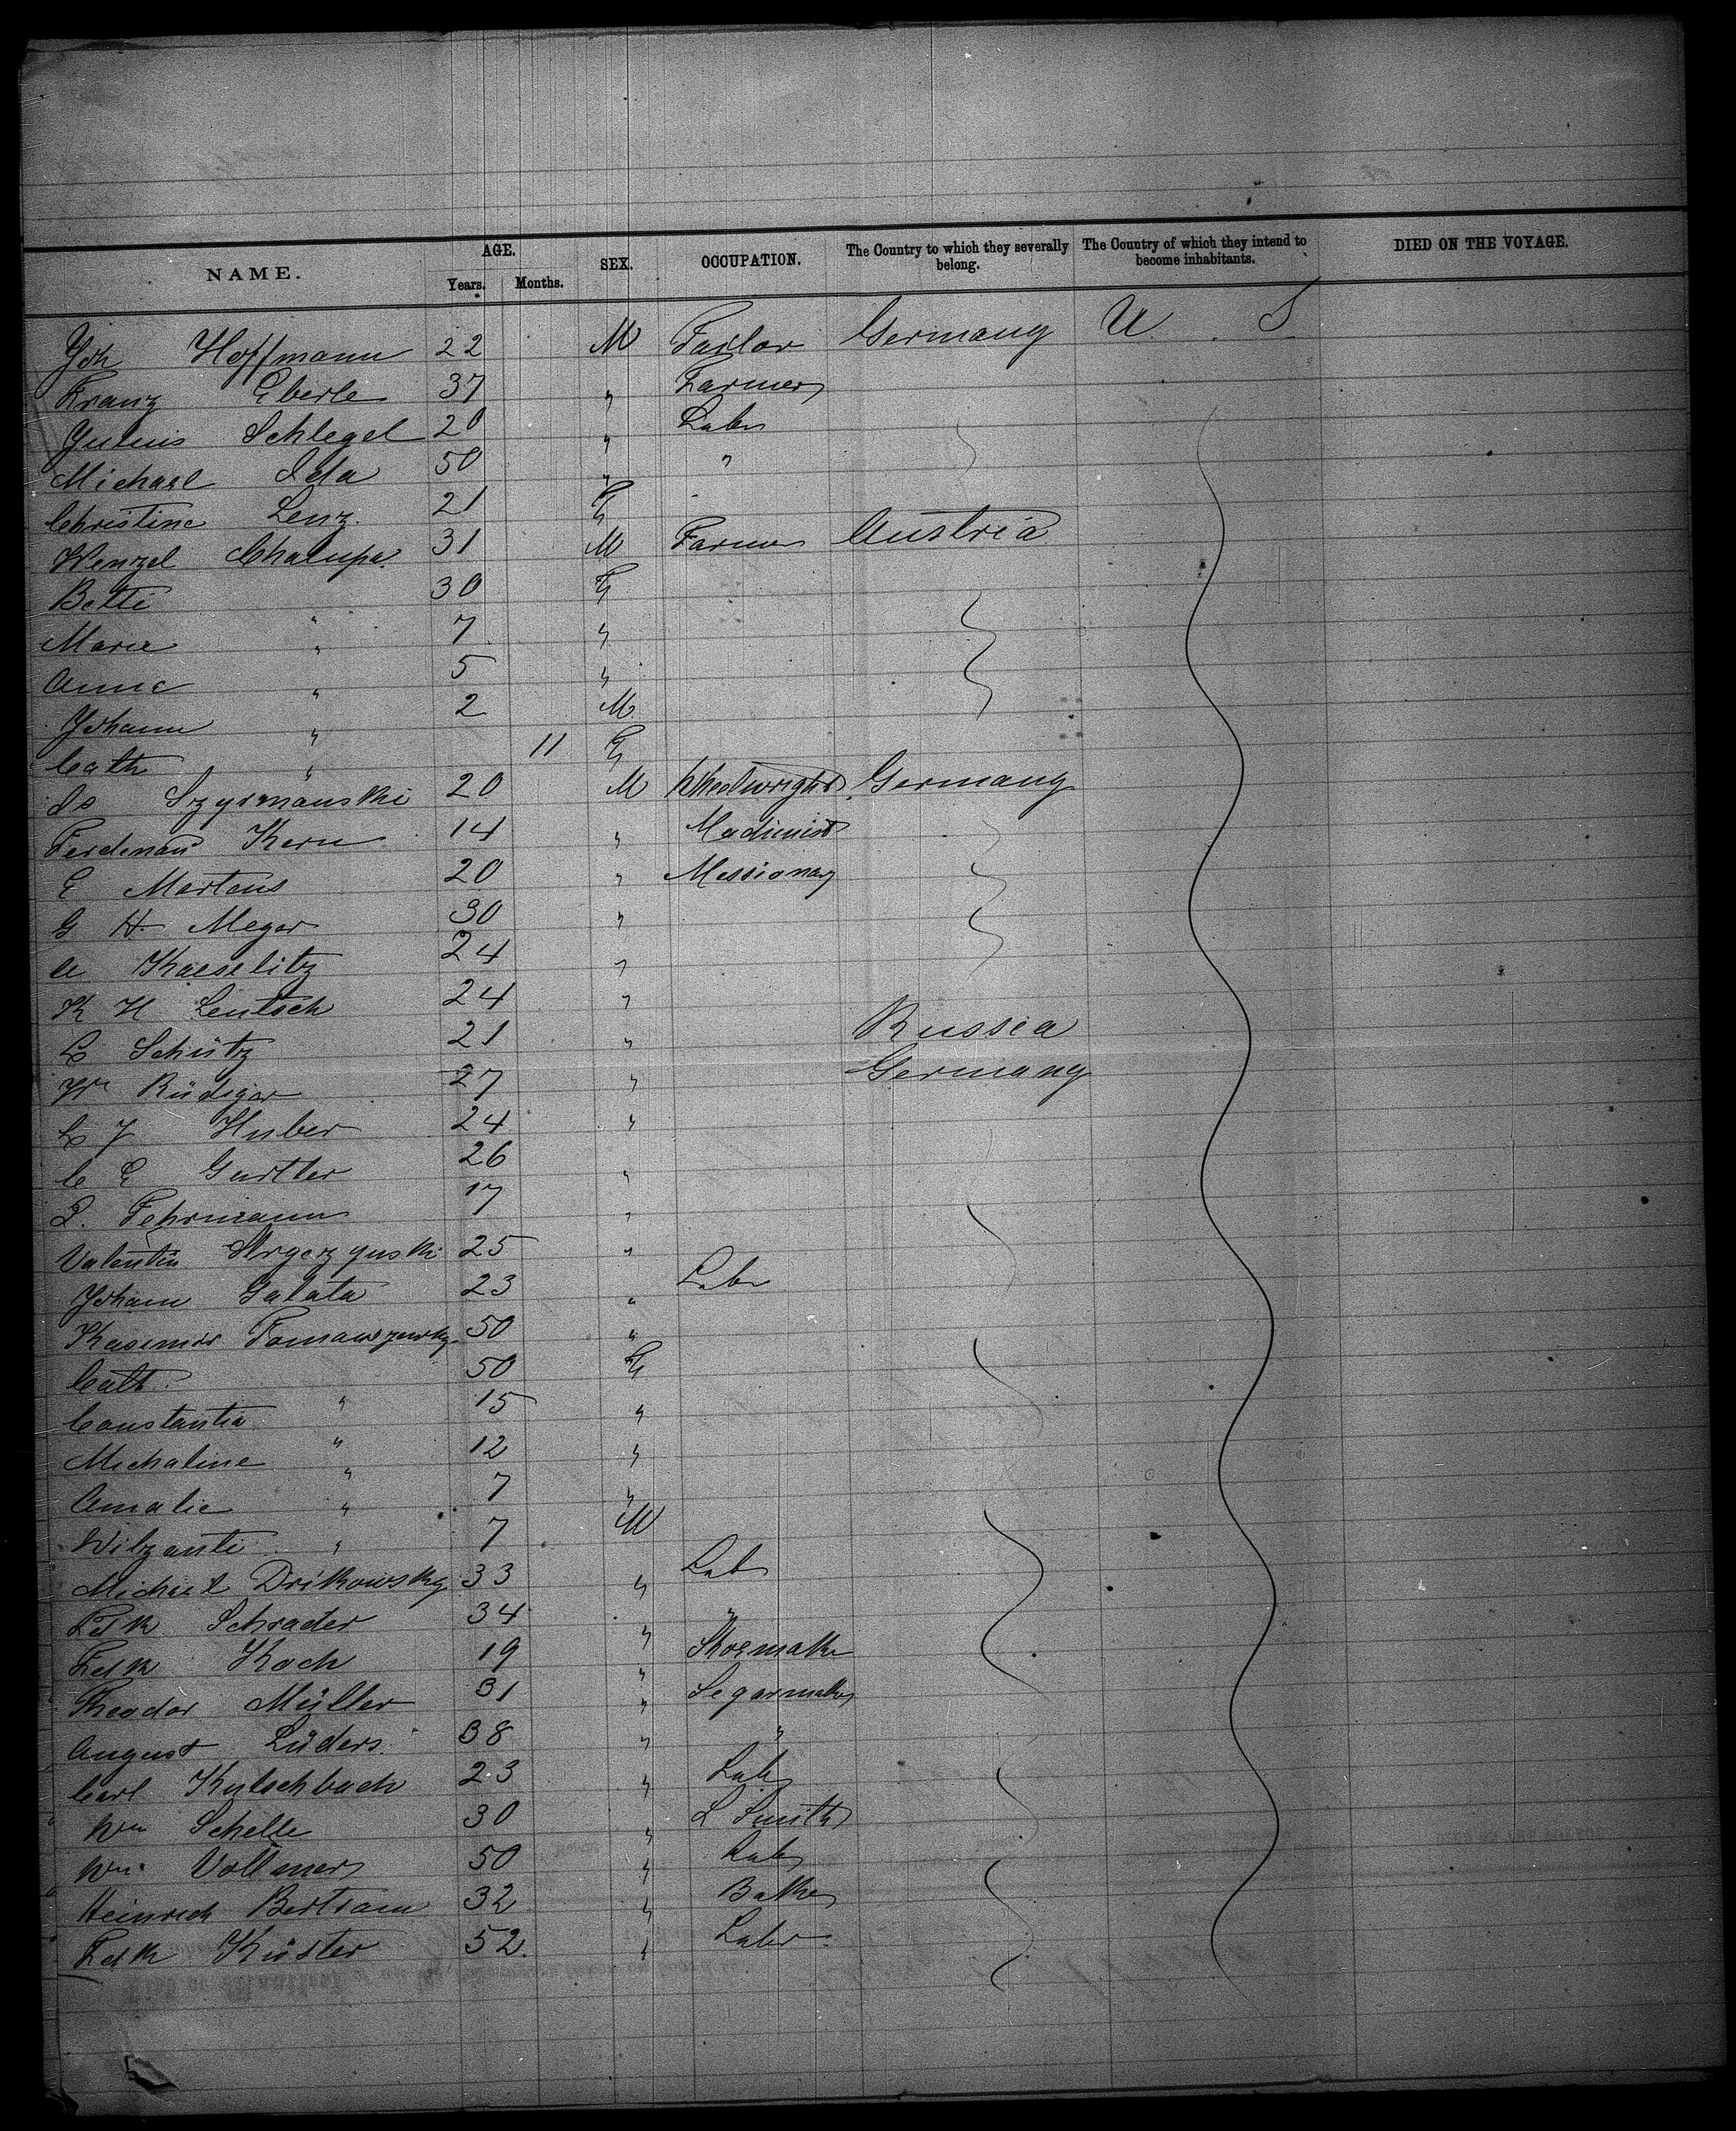 NAME. AGE. Years. Months. SEX. OCCUPATION. The Country to which they severally belong. The Country of which they intend to become inhabitants. DIED ON THE VOYAGE.
Joh Hoffmann 22 M Tailor Germany U S
Franz Eberle 37 " Farmer
Julius Schlegel 20 " Labr
Michael Ida 50 " "
Christine Lenz 21 F
Wenzel Chalupa 31 M Farmer Austria
Betti 30 F
Marie " 7 "
Anna " 5 "
Johann " 2 M
Cath " 11 F
Szysmanski 20 M Wheelwright Germany
Ferdinand Kern 14 " Machinist
E Martens 20 " Missionary
G H Meyer 30 "
Kaeselitz 24 "
K H Lentsch 24 "
C Schütz 21 " Russia
Wm Rüdiger 27 " Germany
C J Huber 24 "
C E Gurtler 26 "
Fehrmann 17 "
Valentin 25 "
Johann Galata 23 " Labr
Kasimir 50 "
Cath 50 F
Constantia " 15 "
Michaline " 12 "
Amalie " 7 "
" 7 M
Michael Drikowsky 33 " Lab
Fedk Schrader 34 " "
Fedk Koch 19 " Shoemaker
Theodor Müller 31 " Segarmaker
August Lüders 38 " "
Carl Kutschbach 23 " Lab
Wm Schelle 30 " L Smith
Wm Vollmer 50 " Lab
Heinrich Bertram 32 " Baker
Fedk Küster 52 " Labr